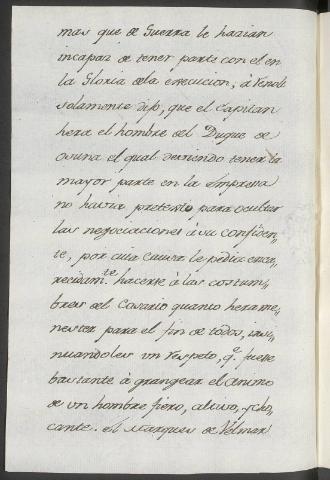 mas que de Guerra le hazian
incapaz de tener parte con el en
la Gloria dela execucion, à Renolt
solamente dijo, que el Capitan
hera el hombre del Duque de
osuna el qual deviendo tener la
mayor parte en la Empressa
no havia pretexto para ocultar
las negociaciones à su confiden-
te, por cuia causa le pedia enca-
recidam.te hacerse à las costum-
bres del Cosario quanto hera me-
nester para el fin de todos, insi-
nuandoles un respeto, q.e fuese
bastante à grangear el animo
de un hombre fiero, altivo, y cho-
cante. el Marques de Velmar